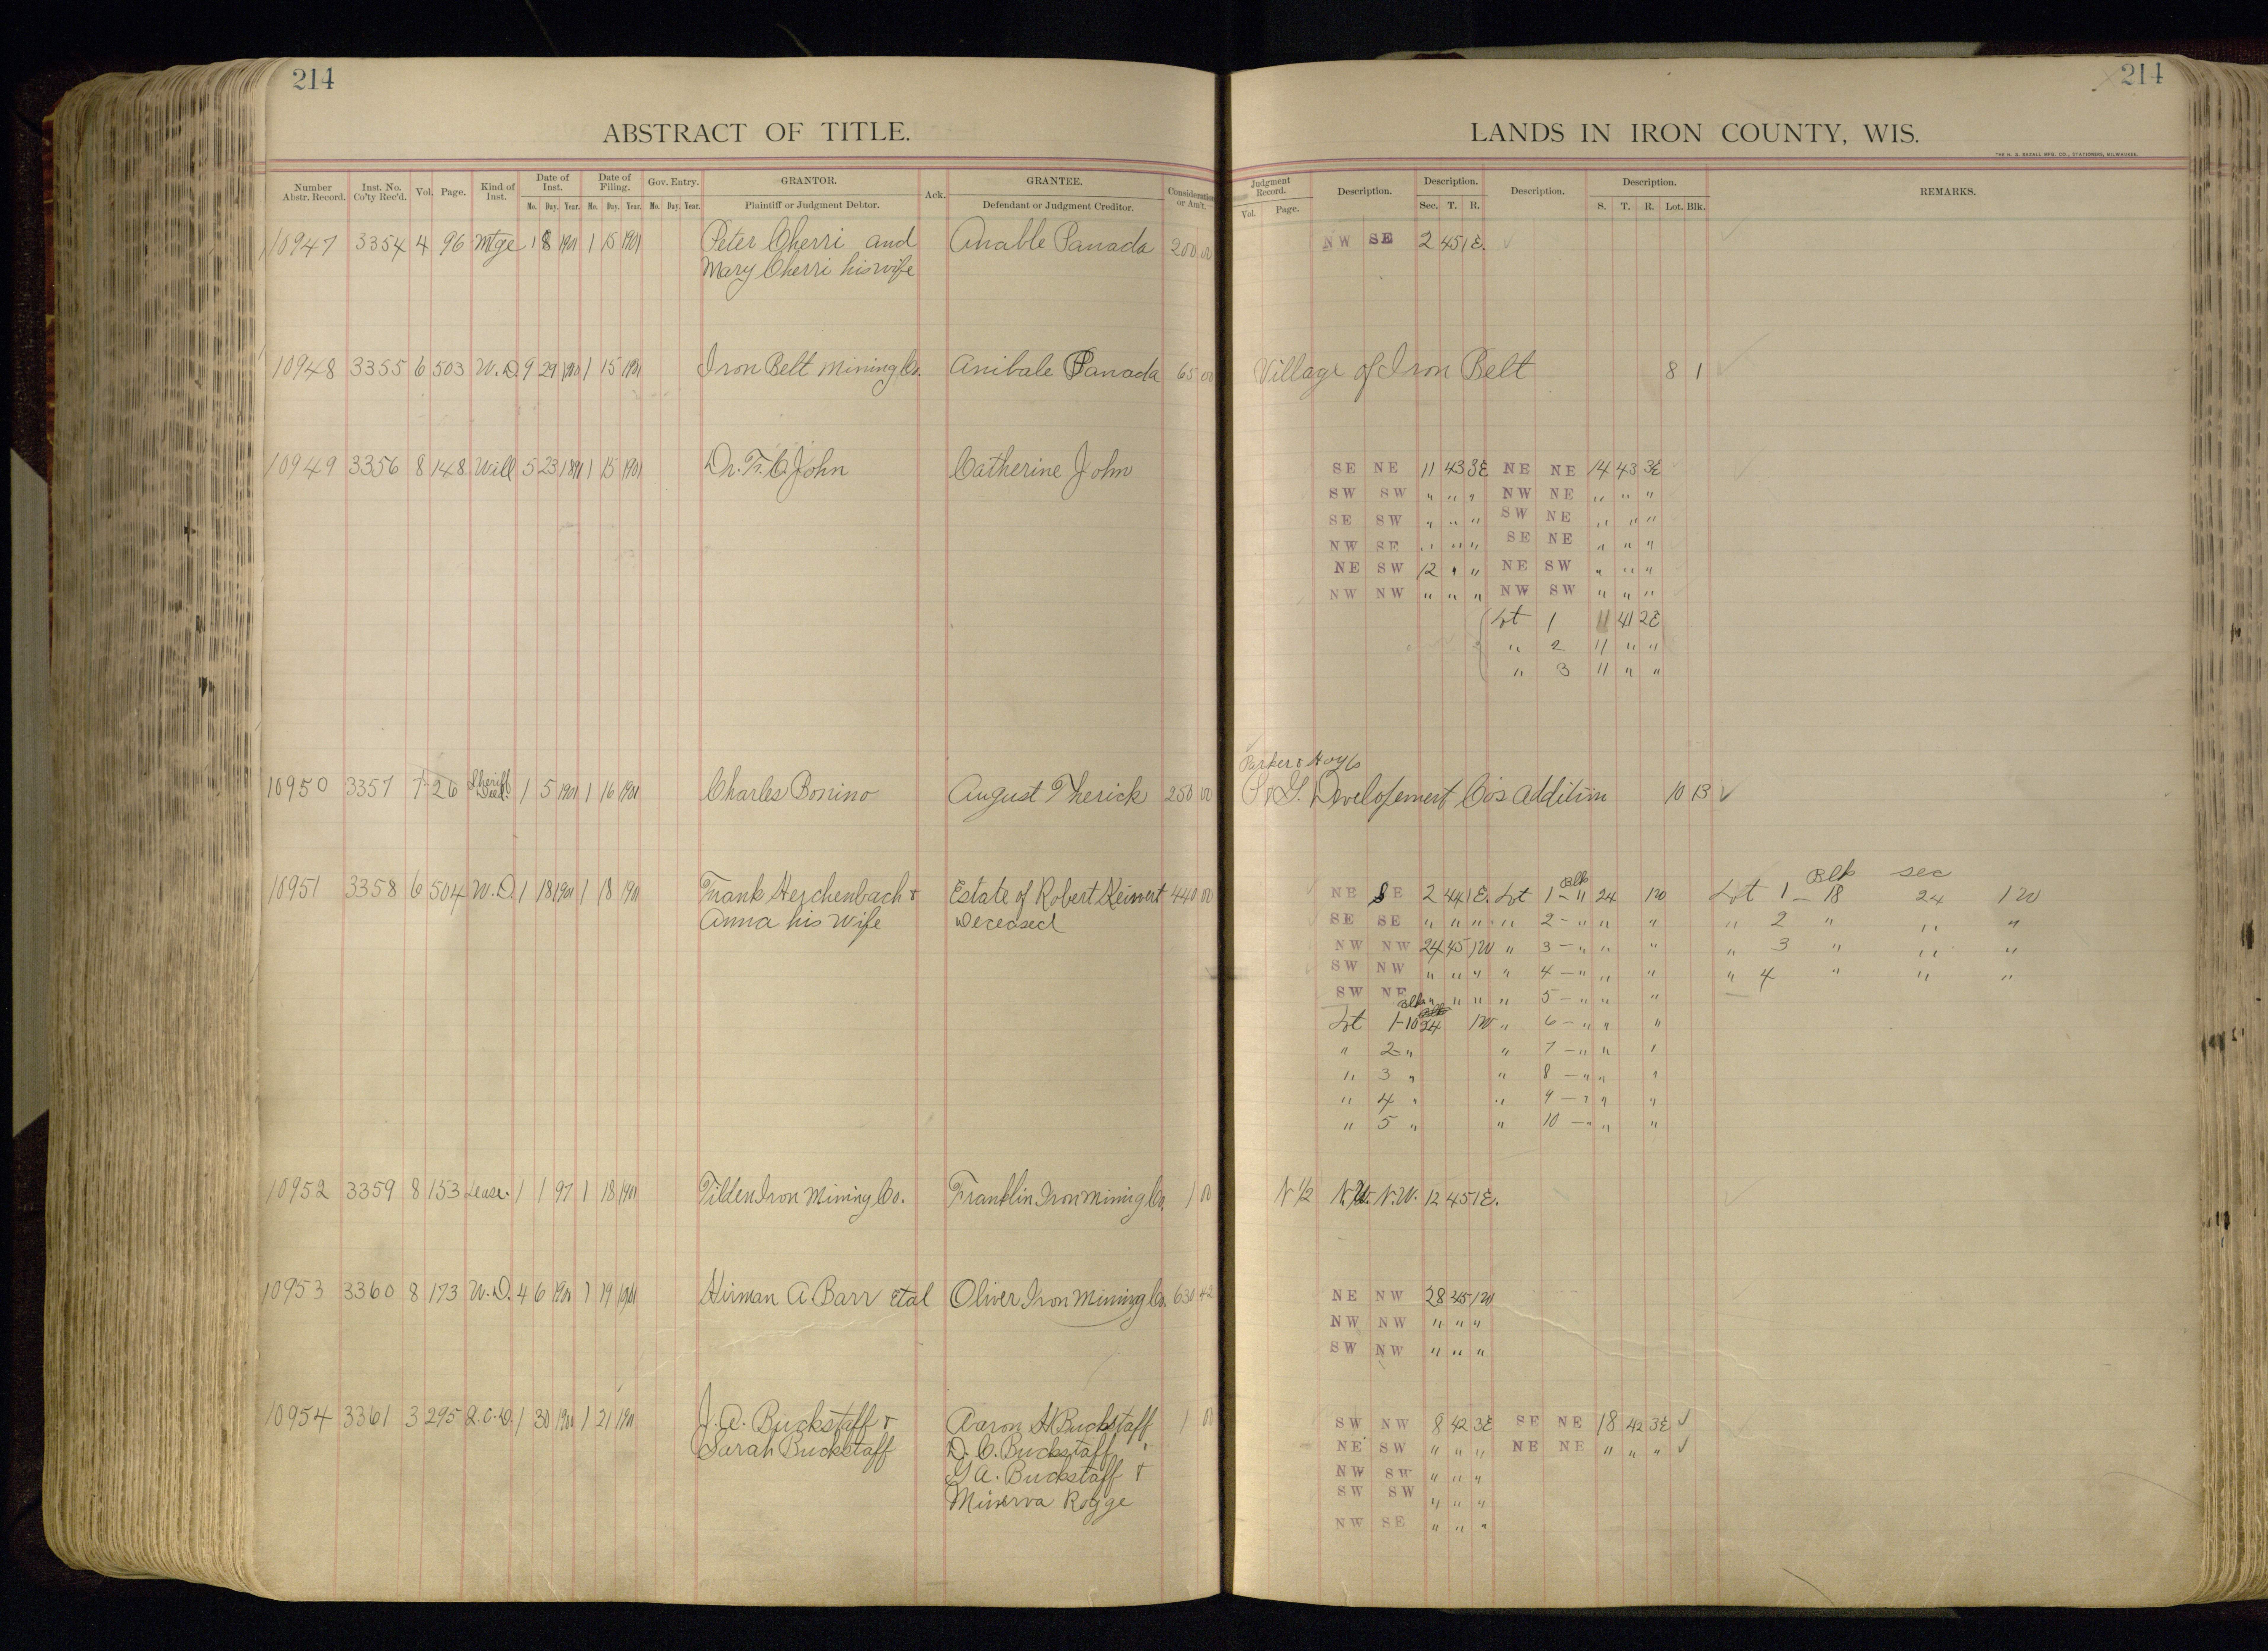 214
ABSTRACT OF TITLE.
Number Abstr. Record. Inst. No. Co'ty Rec'd. Vol. Page. Kind of Inst. Date of Inst. Mo. Day. Year. Date of Filing. Mo. Day. Year. Gov. Entry. Mo. Day. Year. GRANTOR. Plaintiff or Judgment Debtor. Ack. GRANTEE. Defendant or Judgment Creditor. Consideration or Am't.
10947 3354 4 96 Mtge 1 8 1901 1 15 1901 Peter Cherri and Anable Panada 200 00
Mary Cherri his wife
10948 3355 6 503 W.D. 9 29 1900 1 15 1901 Iron Belt Mining Co. Anibale Panada 65 00
10949 3356 8 148 Will 5 23 1891 1 15 1901 Dr. T. C. John Catherine John
10950 3357 7 26 Sheriff Deed 1 5 1901 1 16 1901 Charles Bonino August Therick 250 00
10951 3358 6 504 W.D. 1 18 1901 1 18 1901 Frank Herchenbach & Estate of Robert Keiwert 440 00
Anna his Wife Deceased
10952 3359 8 153 Lease. 1 1 97 1 18 1901 Tilden Iron Mining Co. Franklin Iron Mining Co. 1 00
10953 3360 8 173 W.D. 4 6 1900 1 19 1901 Hirman A Barr Etal Oliver Iron Mining Co. 630 42
10954 3361 3 295 Q.C.D. 1 30 1900 1 21 1901 J.A. Buckstaff & Aaron H Buckstaff 1 00
Sarah Buckstaff D.C. Buckstaff
G A. Buckstaff &
Minerva Rogge
214
LANDS IN IRON COUNTY, WIS.
THE H. G. RAZALL MFG. CO., STATIONERS, MILWAUKEE.
Judgment Record. Vol. Page. Description. Description. Sec. T. R. Description. Description. S. T. R. Lot. Blk. REMARKS.
NW SE 2 45 1E.
Village of Iron Belt 8 1
SE NE 11 43 3E NE NE 14 43 3E
SW SW " " " NW NE " " "
SE SW " " " SW NE " " "
NW SE " " " SE NE " " "
NE SW 12 " " NE SW " " "
NW NW " " " NW SW " " "
Lot 1 11 41 2E
" 2 11 " "
" 3 11 " "
Parker &
Developement Co's Addition 10 13 ✓
NE SE 2 44 1E. Lot 1 - Blk " 24 1W Lot 1 - Blk 18 sec 24 1W
SE SE " " " " 2 - " " " " 2 " " "
NW NW 24 45 1W " 3 - " " " " 3 " " "
SW NW " " " " 4 - " " " " 4 " " "
SW NE " " " " 5 - " " "
Lot 1 - Blk 10 24 1W " 6 - " " "
" 2 - " " 7 - " " "
" 3 " " 8 - " " "
" 4 " " 9 - " " "
" 5 " " 10 - " " "
N 1/2 N.W. N.W. 12 45 1E.
NE NW 28 45 1W
NW NW " " "
SW NW " " "
SW NW 8 42 3E SE NE 18 42 3E ✓
NE SW " " " NE NE " " " ✓
NW SW " " "
SW SW " " "
NW SE " " "